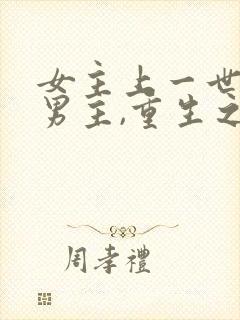 女主上一世
男主,重生之
周孝禮